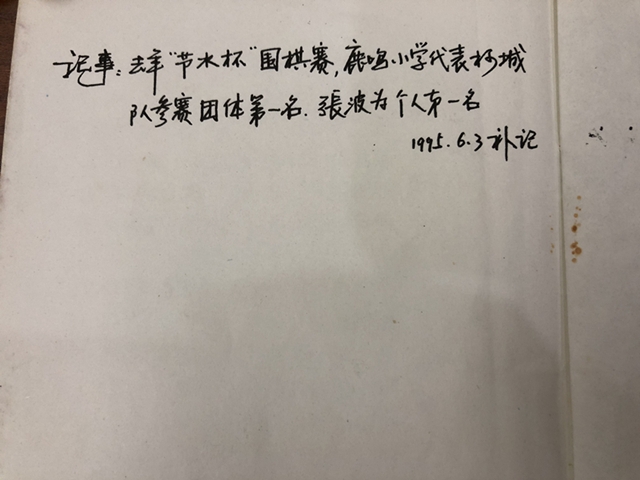 记事：去年“节水杯”围棋赛，鹿鸣小学代表柯城
队参赛团体第一名．張波为个人第一名
1995.6.3 补记